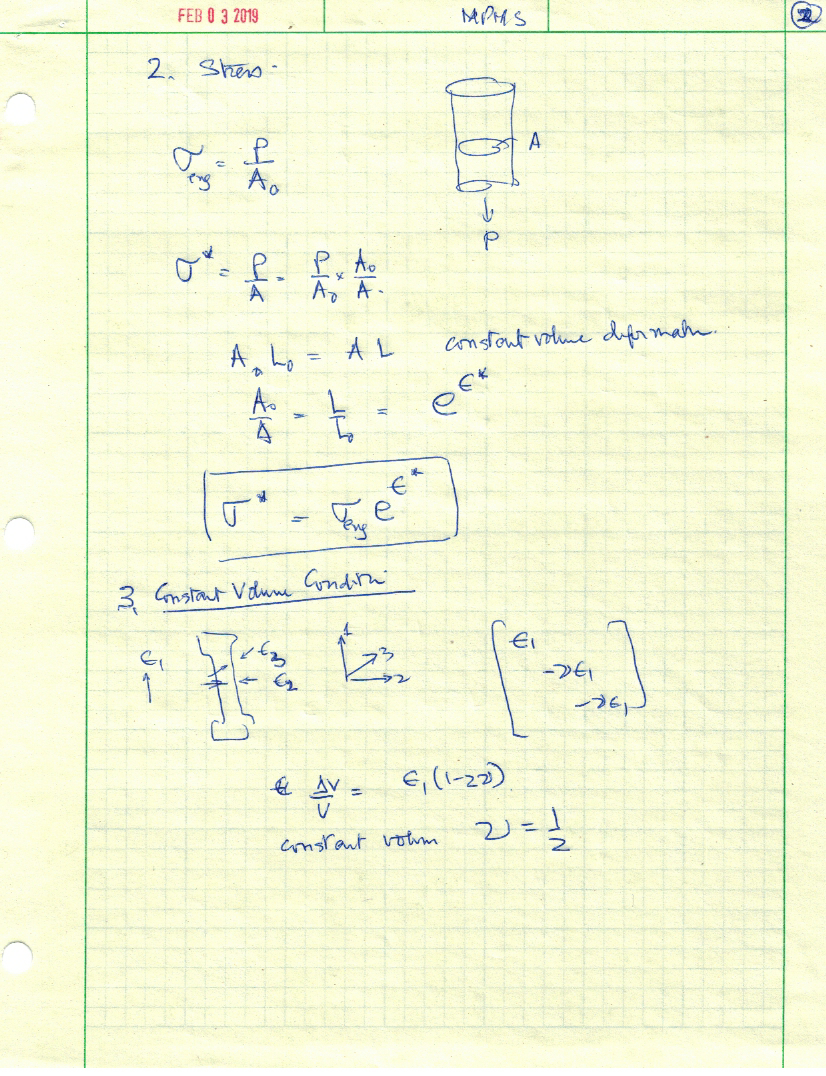 FEB 03 2019 MPMS 2
2. Stress.
σ_eng = P/A₀
A
P
σ* = P/A = P/A₀ × A₀/A.
A₀ L₀ = A L constant volume deformation.
A₀/A = L/L₀ = e^ϵ*
σ* = σ_eng e^ϵ*
3. Constant Volume Condition
ϵ₁ ϵ₃ ϵ₂ 1 3 2
[ϵ₁
-νϵ₁
-νϵ₁]
ΔV/V = ϵ₁(1-2ν)
constant volum ν = 1/2